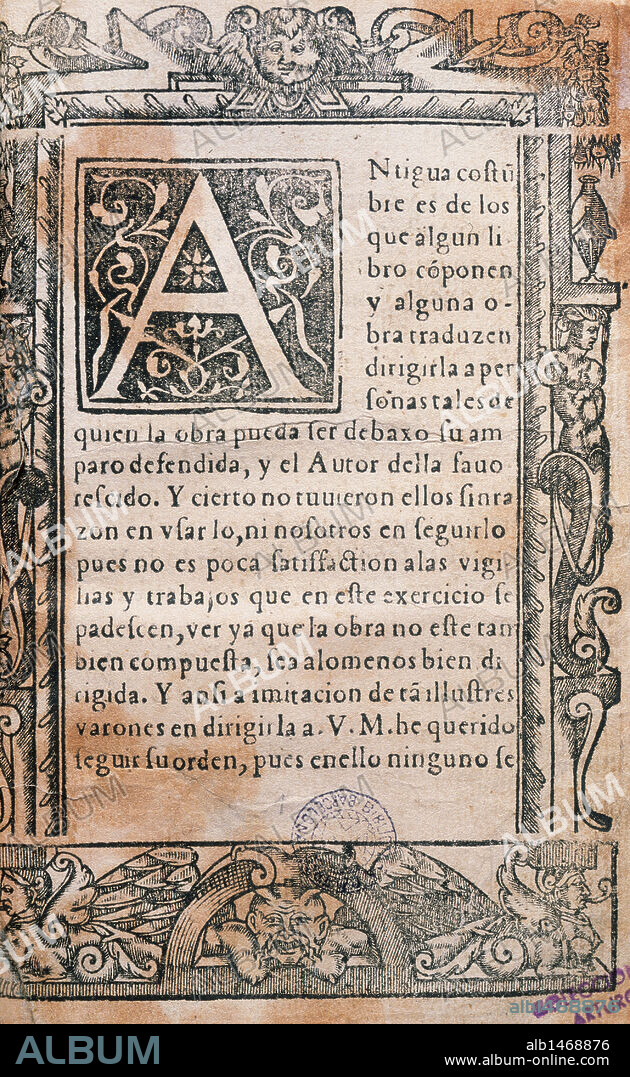 ANtigua costũ
bre es de los
que algun li
bro cõponen
y alguna o-
bra traduzen
dirigirla a per
sonas tales de
quien la obra pueda ser debaxo su am
paro defendida, y el Autor della fauo
rescido. Y cierto no tuuieron ellos sinra
zon en vsarlo, ni nosotros en seguirlo
pues no es poca satisfaction alas vigi
lias y trabajos que en este exercicio se
padescen, ver ya que la obra no este tan
bien compuesta, sea alomenos bien di
rigida. Y ansi a imitacion de tã illustres
varones en dirigirla a. V. M. he querido
seguir su orden, pues enello ninguno se
ALBUM
alb1468876
www.album-online.com